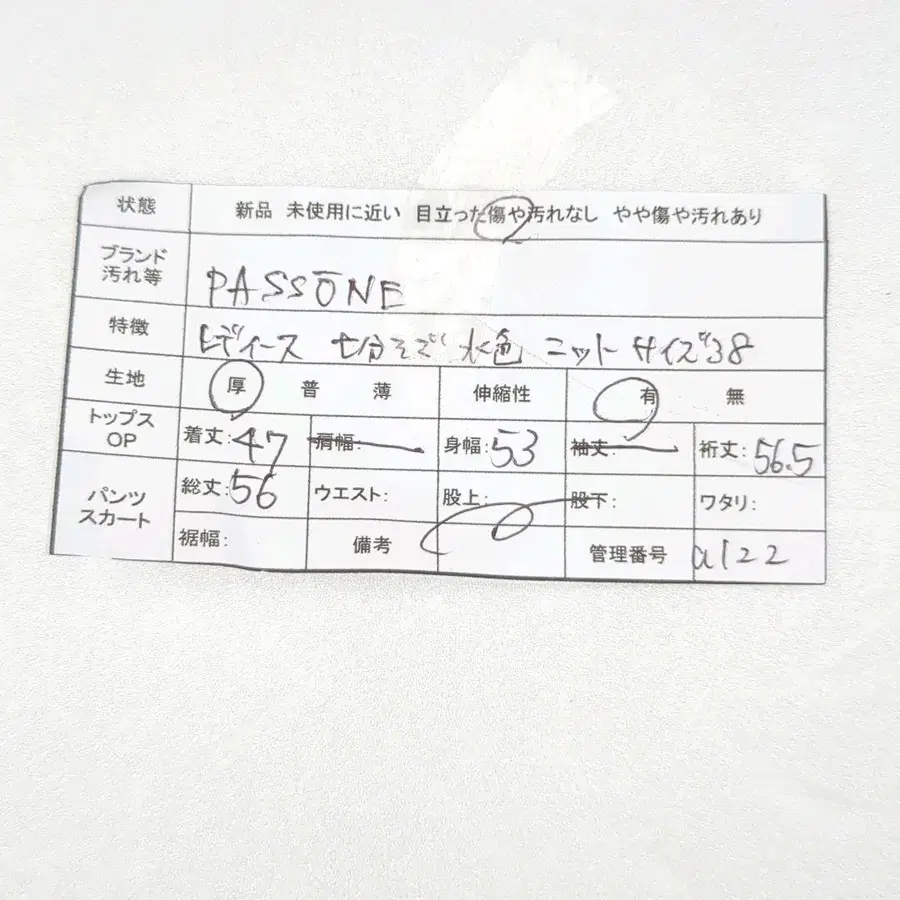 状態 新品 未使用に近い 目立った傷や汚れなし やや傷や汚れあり
ブランド
汚れ等 PASSONE
特徴 レディース 七分そで 水色 ニット サイズ38
生地 厚 普 薄 伸縮性 有 無
トップス
OP 着丈:47 肩幅: 身幅:53 袖丈: 裄丈:56.5
パンツ
スカート 総丈:56 ウエスト: 股上: 股下: ワタリ:
裾幅: 備考 管理番号 a122